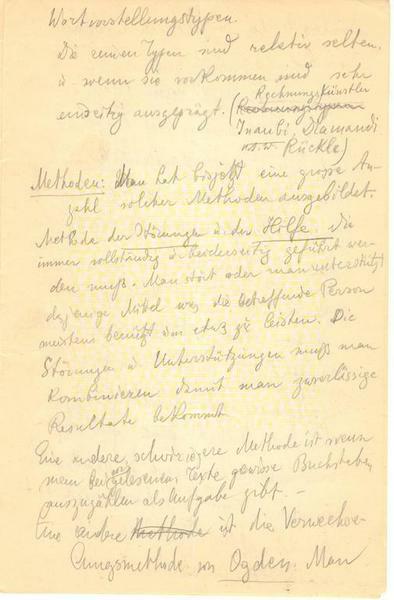 Wortvorstellungstypen.
Die reinen Typen sind relativ selten,
u. wenn sie vorkommen sind sehr
Rechnungskünstler
einseitig ausgeprägt. (
Inaubi, Diamandi
u.s.w. Rückle)
Methoden: Man hat bisjetzt eine grosse An-
zahl solcher Methoden ausgebildet.
Methode der Störungen u. der Hilfe. Die
immer vollständig u. beiderseitig geführt wer-
den muß. Man stört oder man unterstützt
dasjenige Mittel was die betreffende Person
meistens benützt um etwas zu leisten. Die
Störungen u. Unterstützungen muß man
kombinieren damit man zuverlässige
Resultate bekommt
Eine andere, schwierigere Methode ist wenn
man bei gelesenem Texte gewisse Buchstaben
auszuzählen als Aufgabe gibt. –
Eine andere Methode ist die Verwechs-
lungsmethode von Ogden. Man